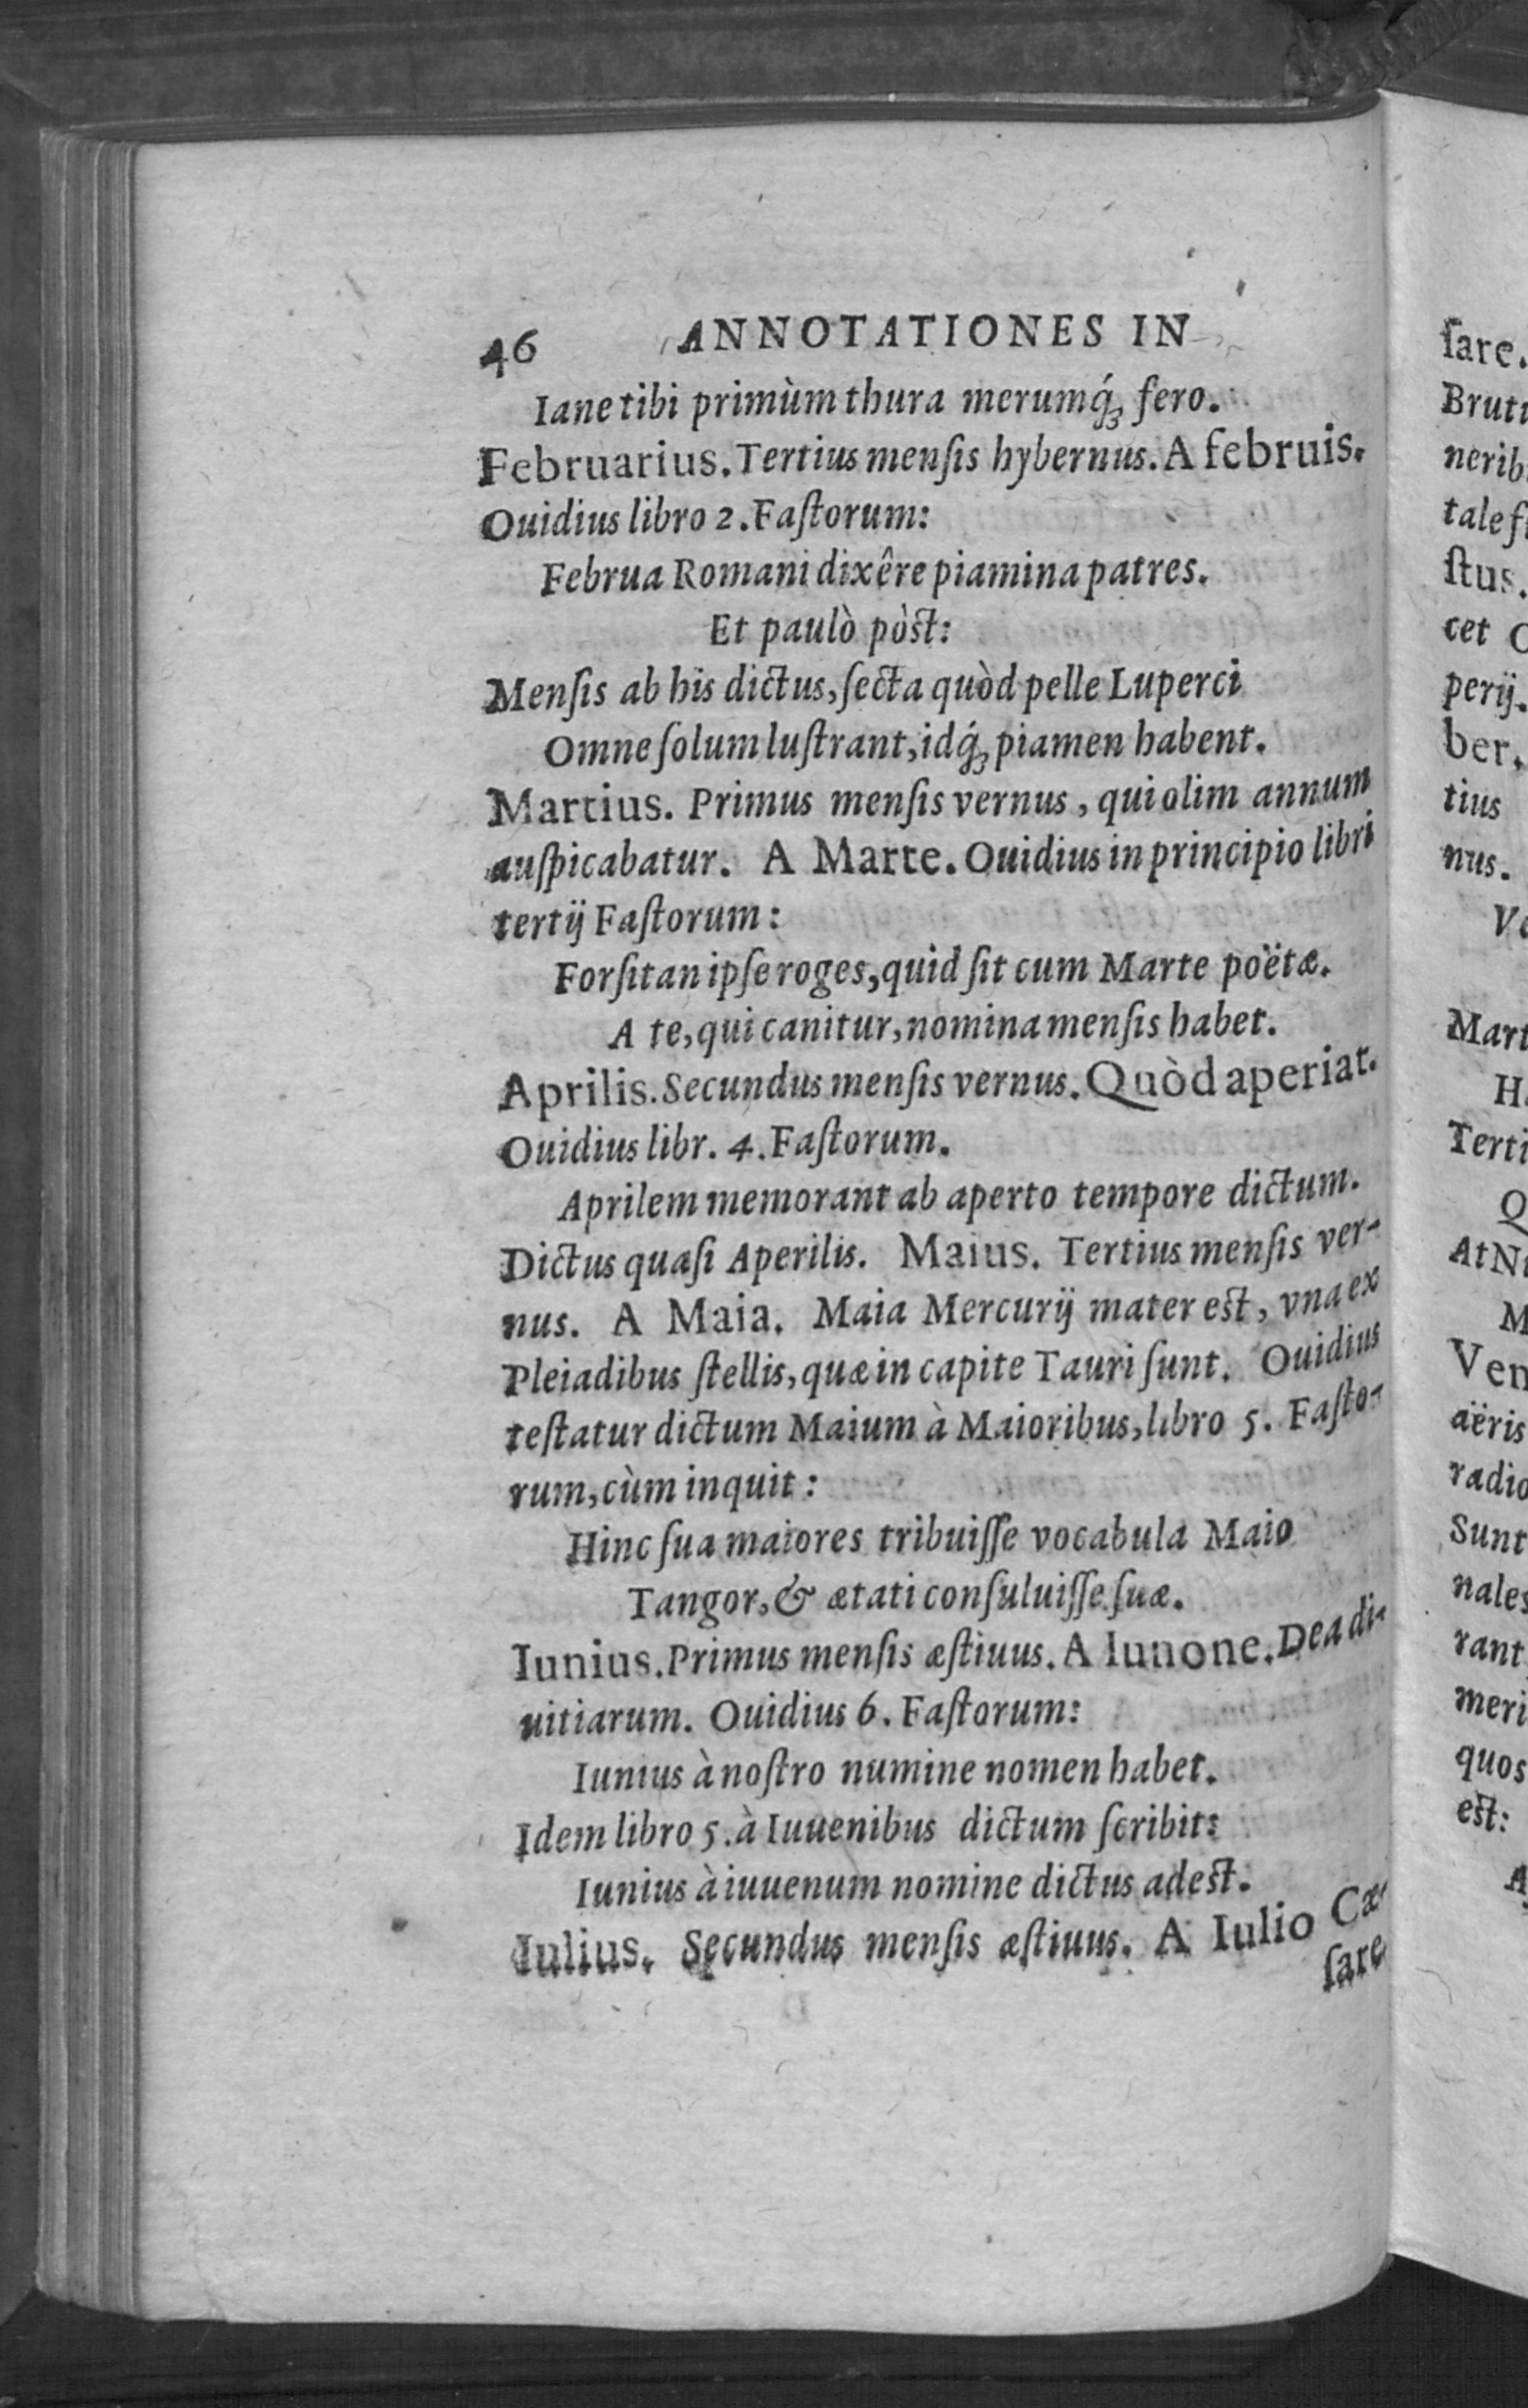 46 ANNOTATIONES IN
Iane tibi primùm thura merumq́ꝫ fero.
Februarius. Tertius menſis hybernus. A februis.
Ouidius libro 2. Faſtorum:
Februa Romani dixêre piamina patres.
Et paulò pòst:
Menſis ab his dictus, ſecta quòd pelle Luperci
Omne ſolum luſtrant, idq́ꝫ piamen habent.
Martius. Primus menſis vernus, qui olim annum
auſpicabatur. A Marte. Ouidius in principio libri
tertij Faſtorum:
Forſitan ipſe roges, quid ſit cum Marte poëtæ.
A te, qui canitur, nomina menſis habet.
Aprilis. Secundus menſis vernus. Quòd aperiat.
Ouidius libr. 4. Faſtorum.
Aprilem memorant ab aperto tempore dictum.
Dictus quaſi Aperilis. Maius. Tertius menſis ver-
nus. A Maia. Maia Mercurij mater est, vna ex
Pleiadibus ſtellis, quæ in capite Tauri ſunt. Ouidius
teſtatur dictum Maium à Maioribus, libro 5. Faſto-
rum, cùm inquit:
Hinc ſua maiores tribuiſſe vocabula Maio
Tangor, & ætati conſuluiſſe ſuæ.
Iunius. Primus menſis æſtiuus. A Iunone. Dea di-
uitiarum. Ouidius 6. Faſtorum:
Iunius à noſtro numine nomen habet.
Idem libro 5. à Iuuenibus dictum ſcribit:
Iunius à iuuenum nomine dictus adest.
Iulius. Secundus menſis æſtiuus. A Iulio Cæ-
ſare
ſare.
cet
perij.
ber.
tius
nus.
At
aëris
Sunt
quos
est: